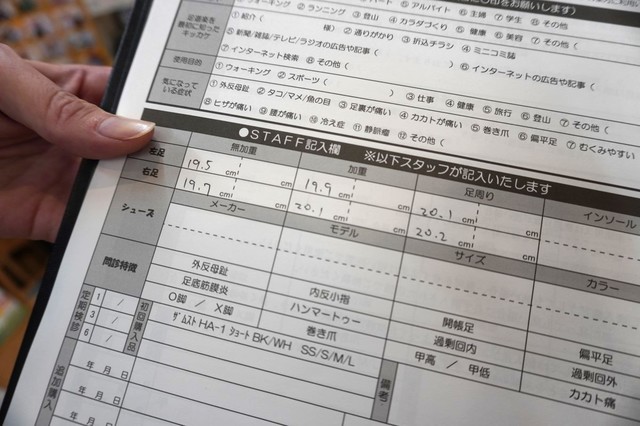 ⑥ アルバイト ⑥ 主婦 ⑦ 学生 ⑧ その他
① ウォーキング ② ランニング ③ 登山 ④ カラダづくり ⑤ 健康 ⑥ 美容 ⑦ その他(
足道楽を最初に知ったキッカケ
① 紹介( 様) ② 通りがかり ③ 折込チラシ ④ ミニコミ誌
⑤ 新聞/雑誌/テレビ/ラジオの広告や記事( ) ⑥ インターネットの広告や記事(
⑦ インターネット検索 ⑧ その他(
使用目的
① ウォーキング ② スポーツ( ) ③ 仕事 ④ 健康 ⑤ 旅行 ⑥ 登山 ⑦ その他(
気になっている症状
① 外反母趾 ② タコ/マメ/魚の目 ③ 足裏が痛い ④ カカトが痛い ⑤ 巻き爪 ⑥ 偏平足 ⑦ むくみやすい
⑧ ヒザが痛い ⑨ 腰が痛い ⑩ 冷え症 ⑪ 静脈瘤 ⑫ その他(
●STAFF記入欄 ※以下スタッフが記入いたします
無加重 加重 足周り インソール
左足 19.5 cm 19.9 cm 20.1 cm
右足 19.7 cm 20.1 cm 20.2 cm
シューズ メーカー モデル サイズ カラー
問診特徴
外反母趾 内反小指 開帳足 偏平足
足底筋膜炎 ハンマートゥー 過剰回内 過剰回外
O脚 / X脚 巻き爪 甲高 / 甲低 カカト痛
定期検診 1 / 3 / 6 /
初回購入品
ザムスト HA-1 ショート BK/WH SS/S/M/L
備考
追加購入
年 月 日
年 月 日
年 月 日